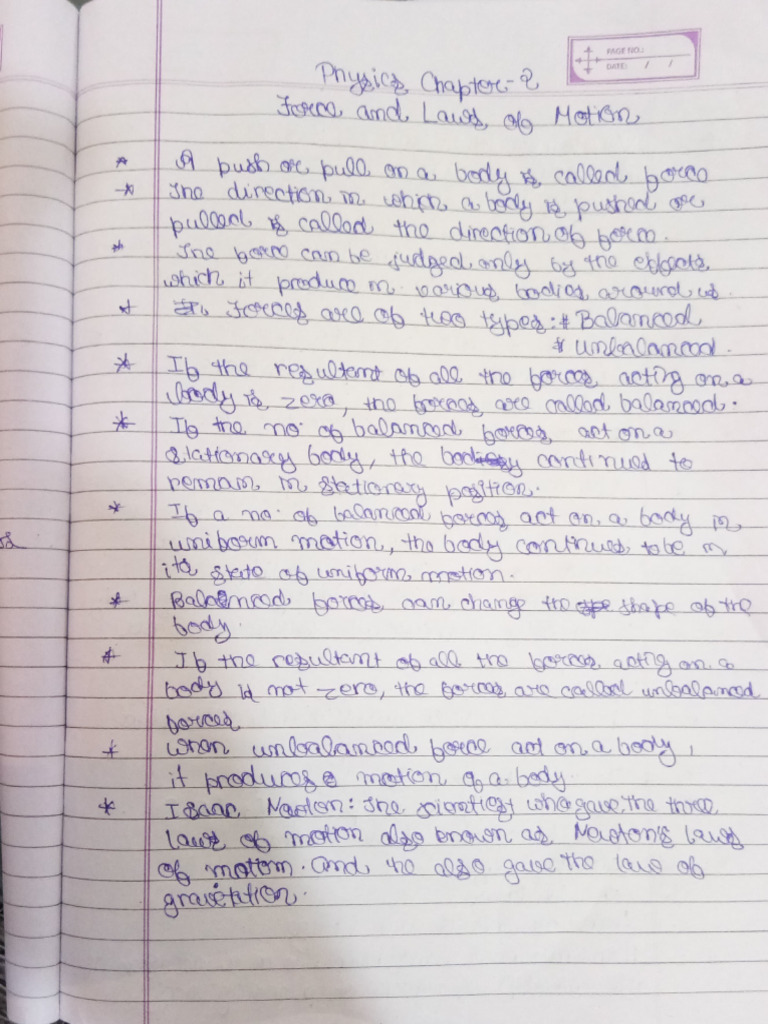 PAGE NO.:
DATE: / /
Physics Chapter-2
Force and Laws of Motion
* A push or pull on a body is called force
* The direction in which a body is pushed or
pulled is called the direction of force.
* The force can be judged only by the effects
which it produce in various bodies around us.
* Forces are of two types: * Balanced
* Unbalanced.
* If the resultant of all the forces acting on a
body is zero, the forces are called balanced.
* If the no. of balanced forces act on a
stationary body, the body continues to
remain in stationary position.
* If a no. of balanced forces act on a body in
uniform motion, the body continues to be in
its state of uniform motion.
* Balanced forces can change the shape of the
body.
* If the resultant of all the forces acting on a
body is not zero, the forces are called unbalanced
forces
* When unbalanced force act on a body,
it produces motion of a body.
* Isaac Newton: The scientist who gave the three
laws of motion also known as Newton's laws
of motion. and he also gave the law of
gravitation.